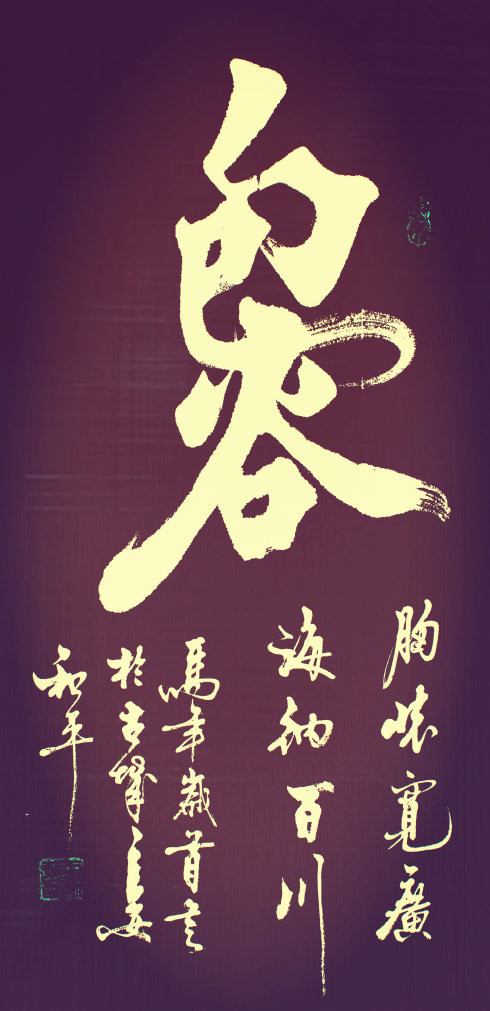 包容
胸懷寬廣
海納百川
馬年歲首書
於古城長安
和平